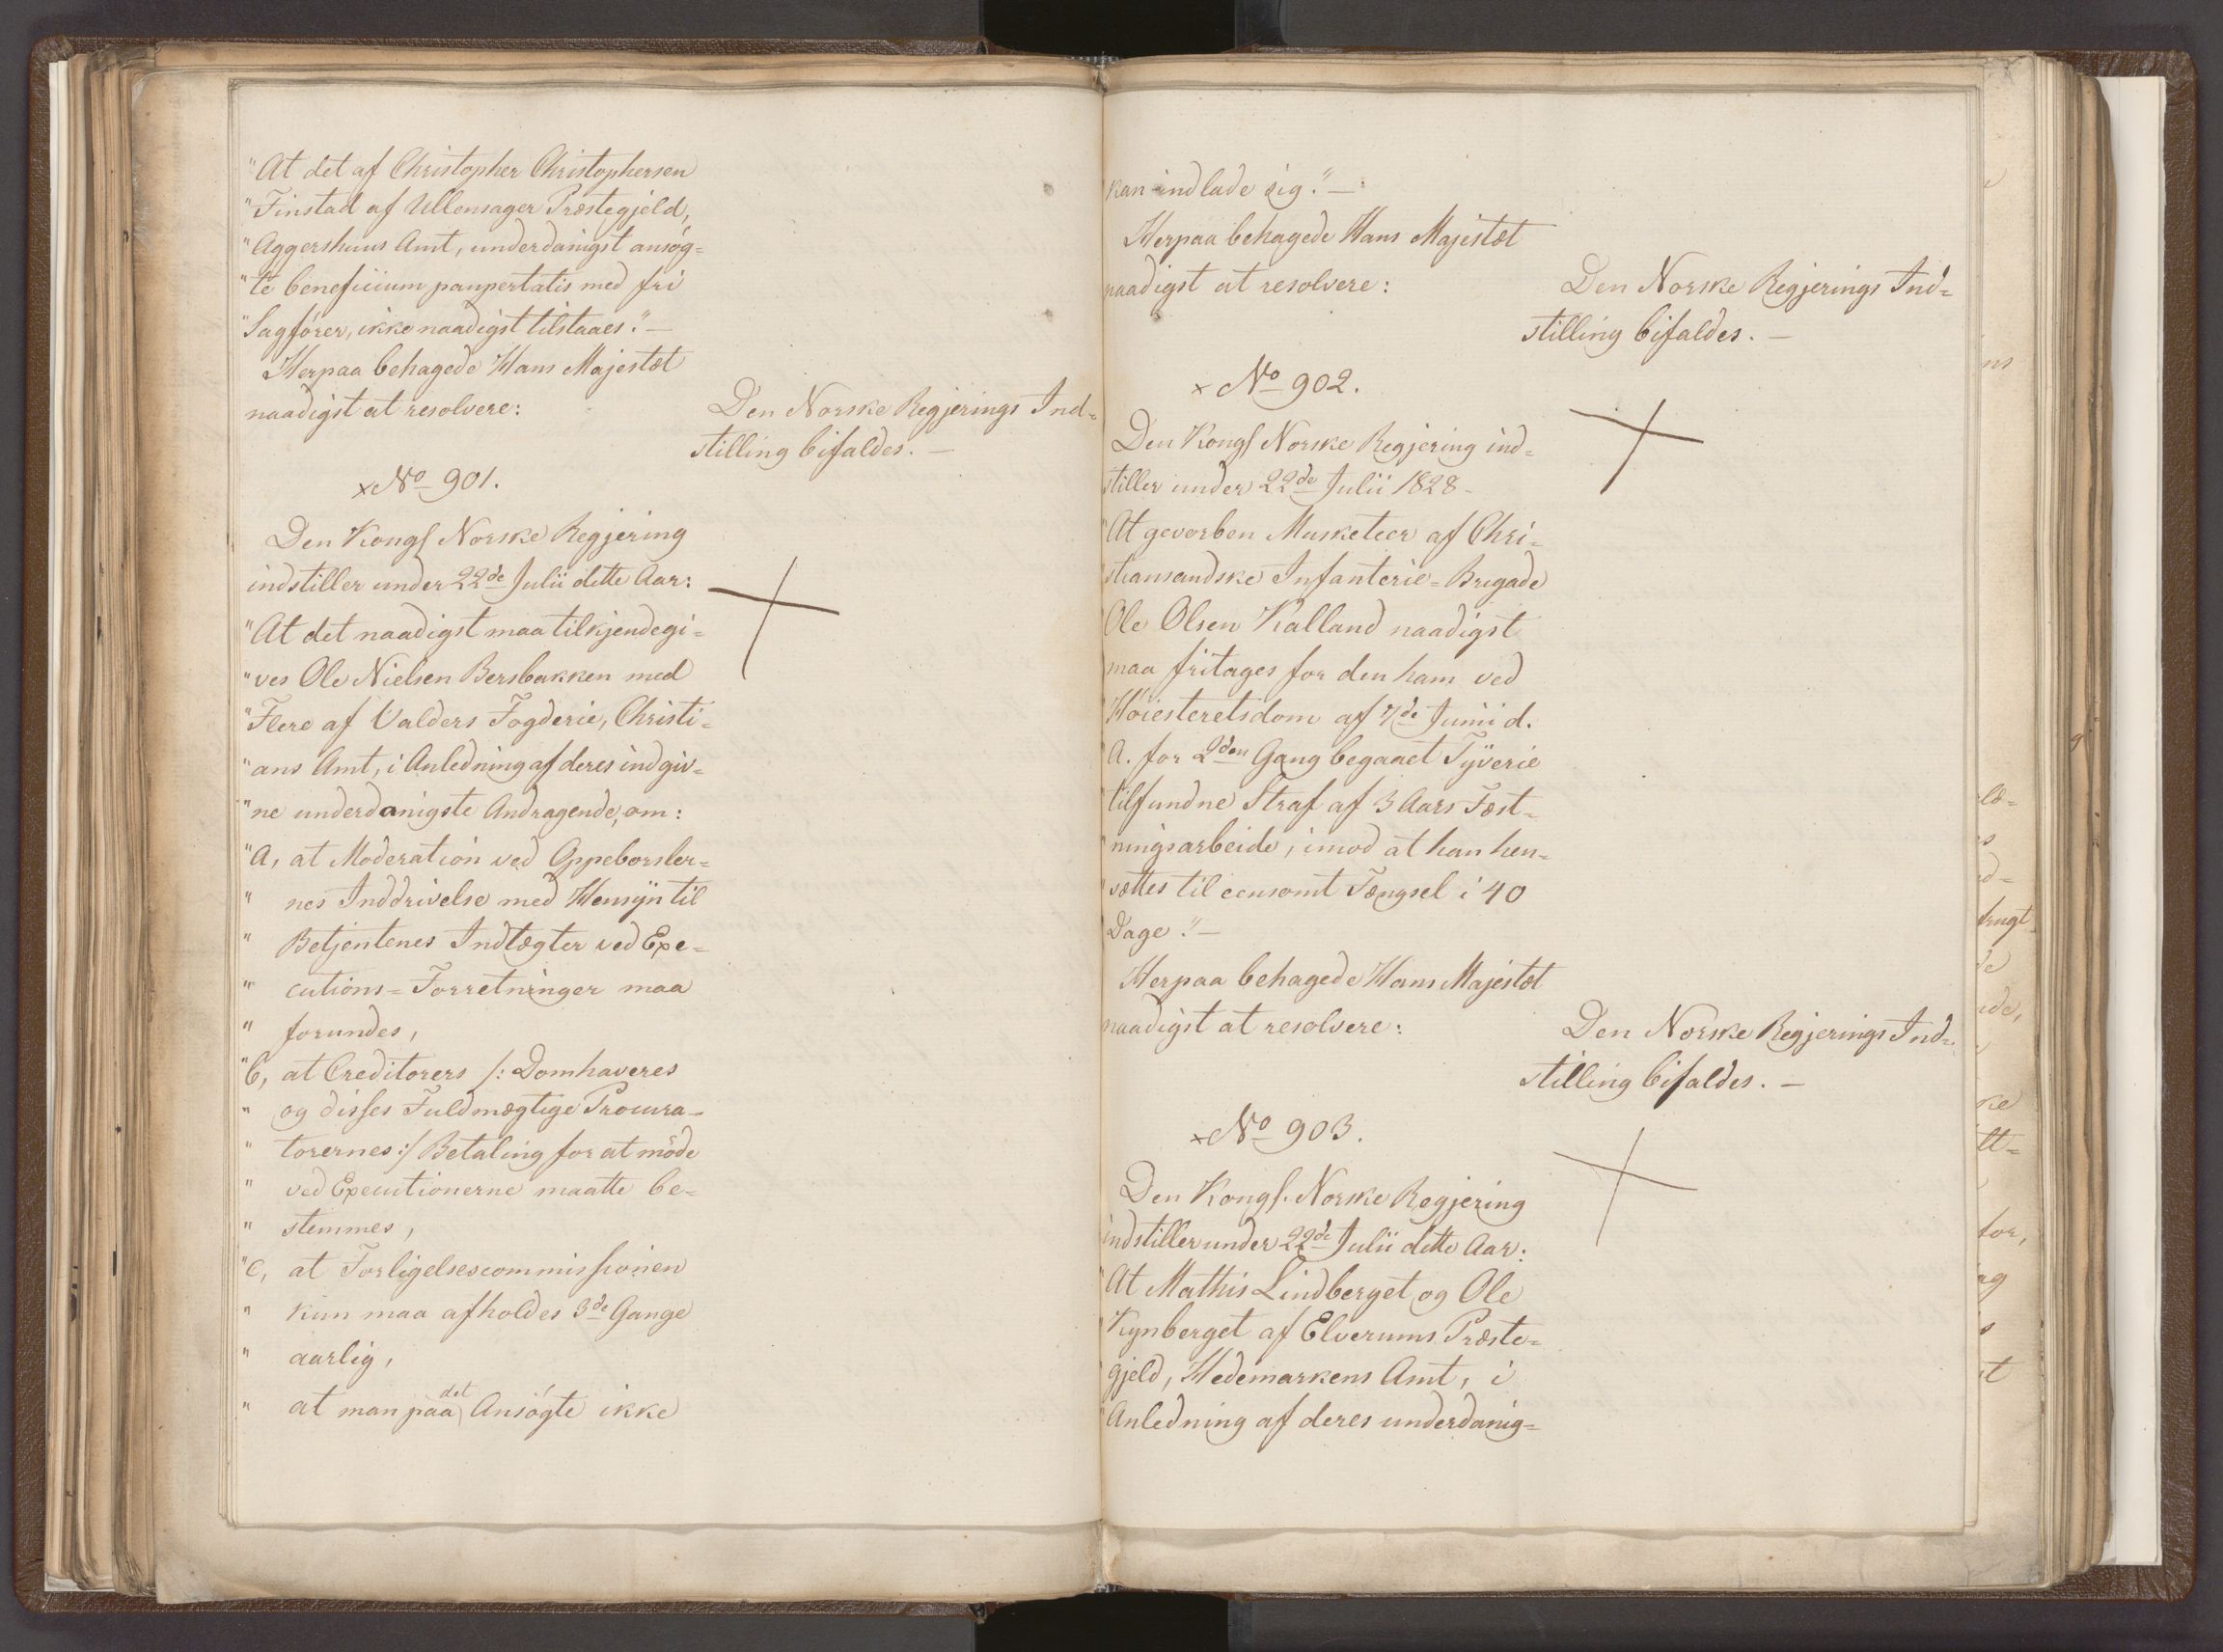 "At det af Christopher Christophersen
"Finstad af Ullensager Præstegjeld,
"Aggershuus Amt, underdanigst ansög=
"te beneficium paupertatis med fri
"Sagförer, ikke naadigst tilstaaes."—
Herpaa behagede Hans Majestæt
naadigst at resolvere:
Den Norske Regjerings Ind=
stilling bifaldes. —
x No 901.
Den Kongl Norske Regjering
indstiller under 22de Julii dette Aar:
"At det naadigst maa tilkjendegi=
"ves Ole Nielsen Bersbakken med
"Flere af Valders Fogderie, Christi=
"ans Amt, i Anledning af deres indgiv=
"ne underdanigste Andragende, om:
"a, at Moderation ved Oppebørsler=
" nes Inddrivelse med Hensÿn til
" Betjentenes Indtægter ved Exe=
" cutions=Forretninger maa
" forundes,
"b, at Creditorers /: Domhaveres
" og disses Fuldmægtige Procura=
" torernes :/ Betaling for at möde
" ved Executionerne maatte be=
" stemmes,
"c, at Forligelsescommissionen
" kun maa afholdes 3de Gange
" aarlig,
" at man paa det Ansögte ikke
kan indlade sig."—
Herpaa behagede Hans Majestæt
naadigst at resolvere:
Den Norske Regjerings Ind=
stilling bifaldes. —
x No 902.
Den Kongl Norske Regjering ind=
stiller under 22de Julii 1828-
"At gevorben Musketeer af Chri=
"stiansandske Infanterie=Brigade
"Ole Olsen Kalland naadigst
"maa fritages for den ham ved
"Höiesteretsdom af 7de Junii d.
"A. for 2den Gang begaaet Tÿverie
"tilfundne Straf af 3 Aars Fæst=
"ningsarbeide, imod at han hen=
"sættes til eensomt Fængsel i 40
"Dage."—
Herpaa behagede Hans Majestæt
naadigst at resolvere:
Den Norske Regjerings Ind=
stilling bifaldes. —
x No 903.
Den Kongl. Norske Regjering
indstiller under 22de Julii dette Aar:
"At Mathis Lindberget og Ole
"Kynberget af Elverums Præste=
"gjeld, Hedemarkens Amt, i
"Anledning af deres underdanig=